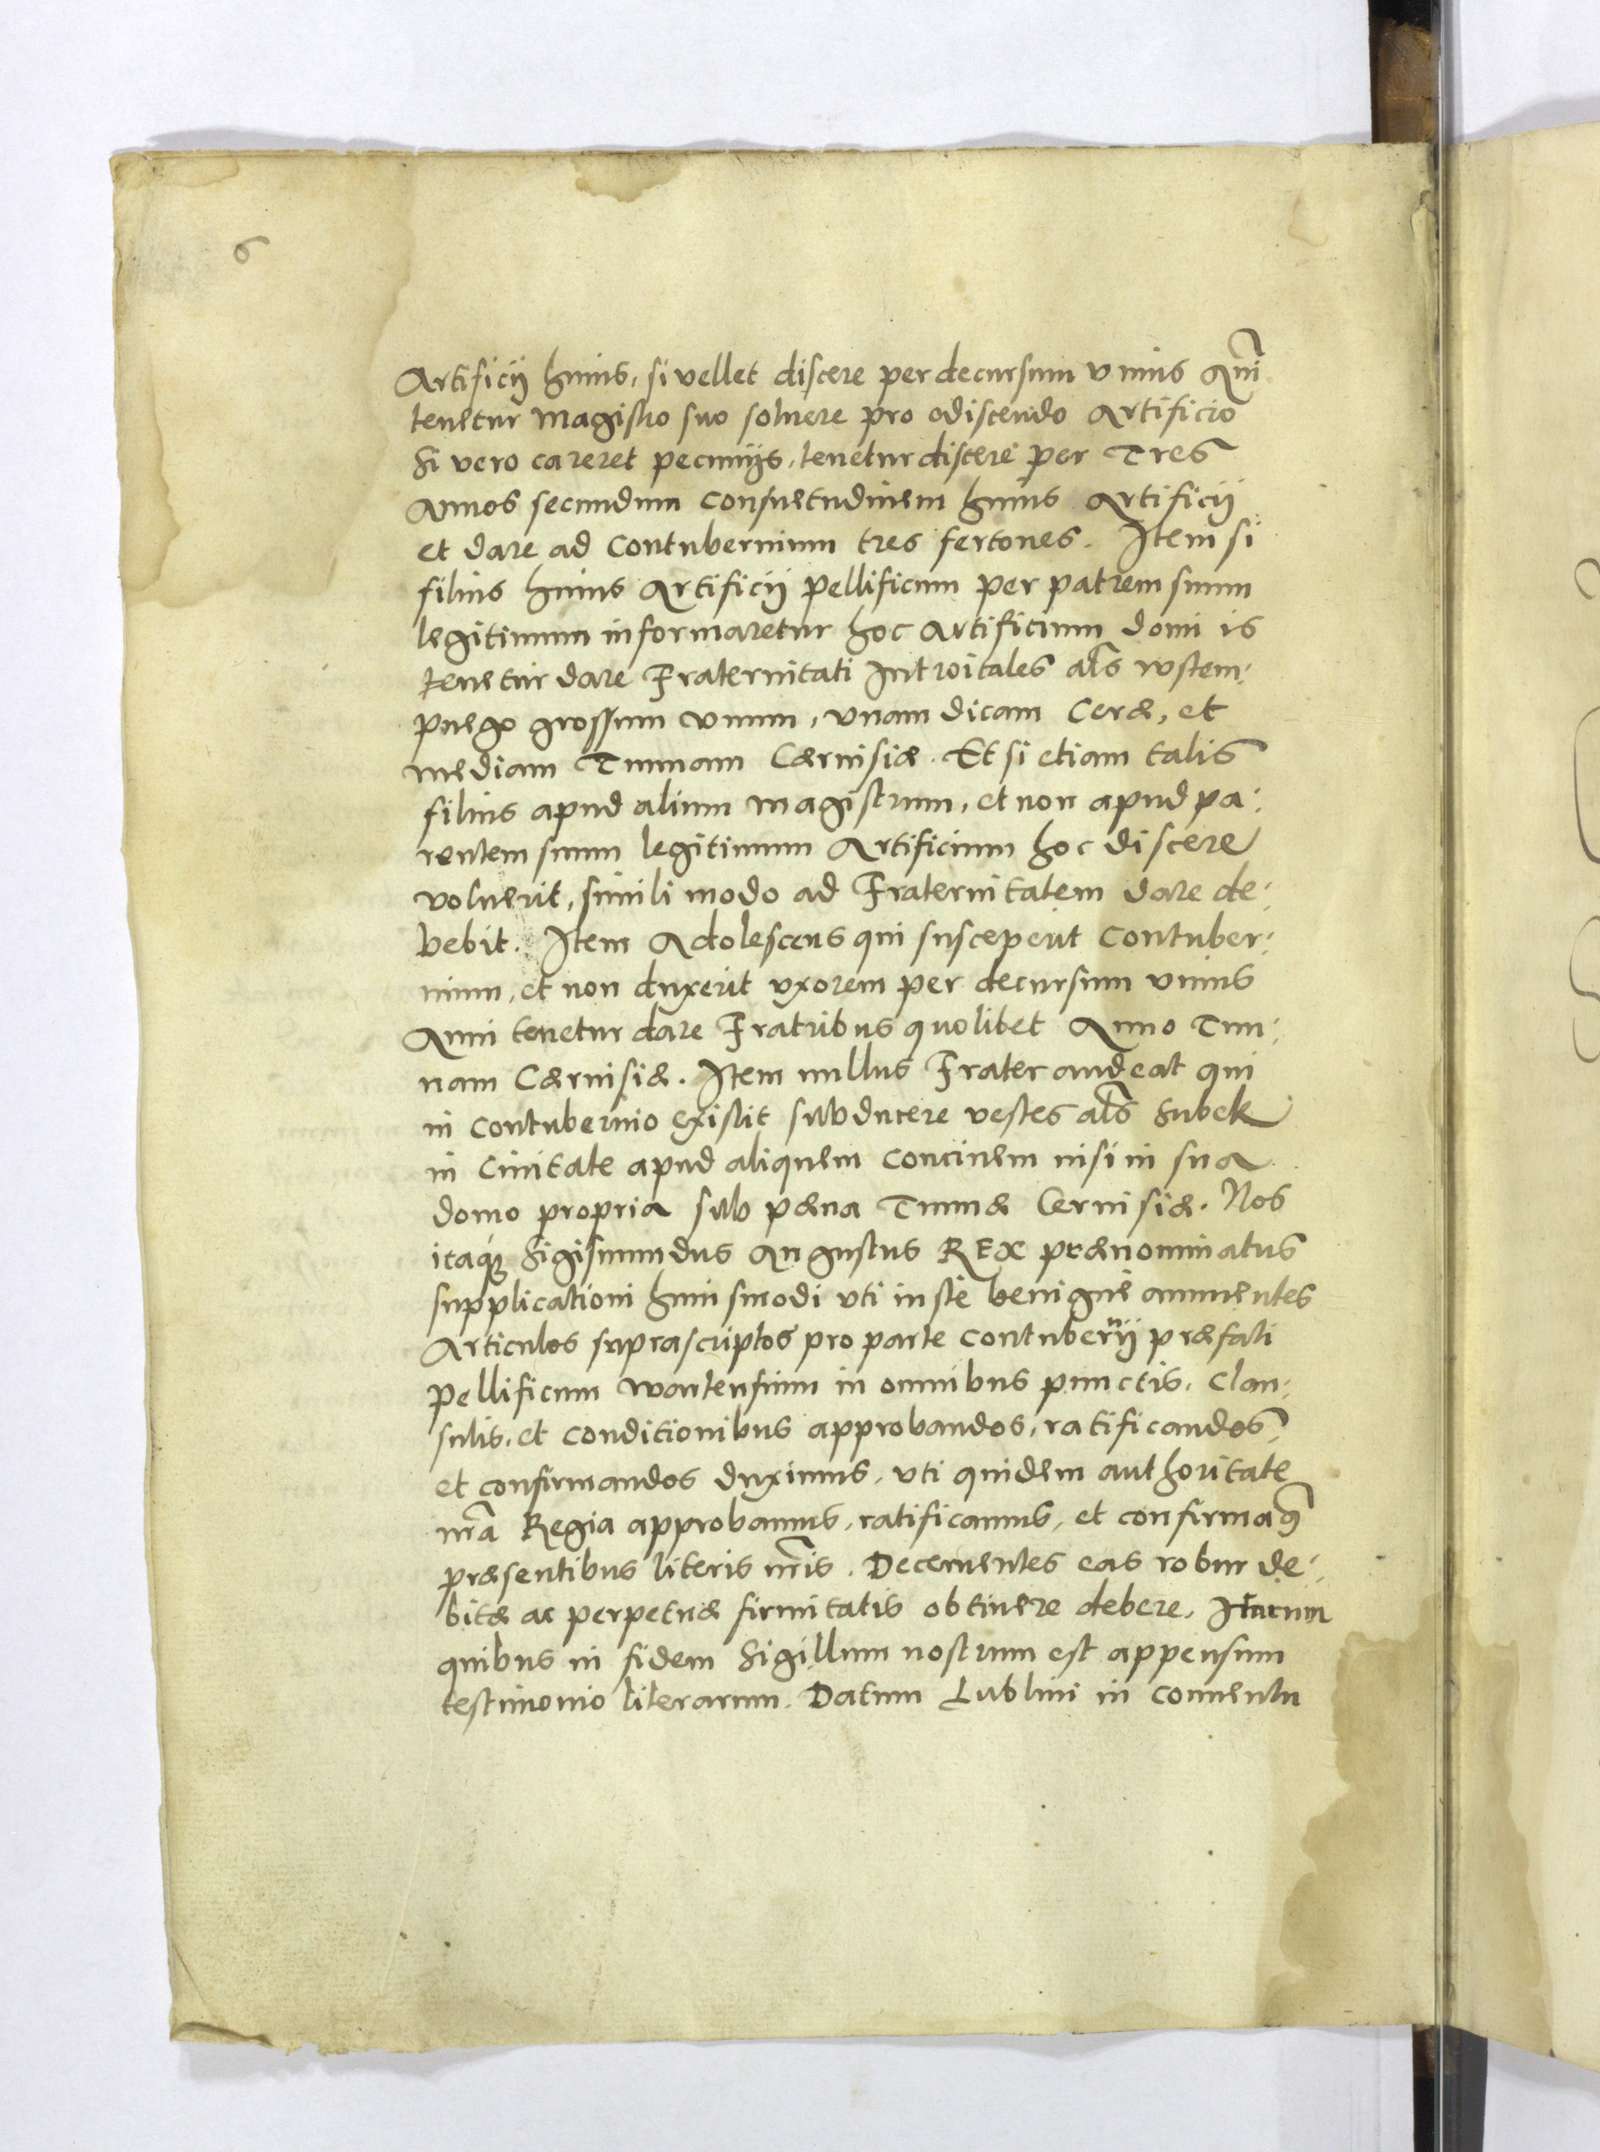 6
Artificij huius, si vellet discere per decursum vnius Ani
tenetur Magistro suo soluere pro ediscendo Artificio
Si vero careret pecunijs, tenetur discere per Tres
Annos secundum consuetudinem huius Artificij
et dare ad Contubernium tres fertones. Item si
filius huius Artificij pellificum per patrem suum
legitimum informaretur hoc Artificium domi is
tenetur dare Fraternitati Introitales als wstem:
pnego grossum vnum, vnam dicam Ceræ, et
mediam Tunnam Cæruisiæ. Et si etiam talis
filius apud alium magistrum, et non apud pa:
rentem suum legitimum Artificium hoc discere
voluerit, simili modo ad Fraternitatem dare de:
bebit. Item Adolescens qui susceperit Contuber:
nium, et non duxerit vxorem per decursum vnius
Anni tenetur dare Fratribus quolibet Anno Tun:
nam Cæruisiæ. Item nullus Frater audeat qui
in Contubernio existit subducere vestes als Subek
in Ciuitate apud aliquem conciuem nisi in sua
domo propria sub pæna Tunnæ Ceruisiæ. Nos
itaque Sigismundus Augustus REX prænominatus
supplicationi huiusmodi vti iustè benignè annuentes
Articulos suprascriptos pro parte contubernij præfati
Pellificum Wartensium in omnibus punctis, Clau:
sulis, et conditionibus approbandos, ratificandos,
et confirmandos duximus, vti quidem authoritate
nrã Regia approbamus, ratificamus, et confirmaq
præsentibus literis nris. Decernentes eas robur de:
bitæ ac perpetuæ firmitatis obtinere debere. Harum
quibus in fidem Sigillum nostrum est appensum
testimonio literarum. Datum Lublini in conuentu